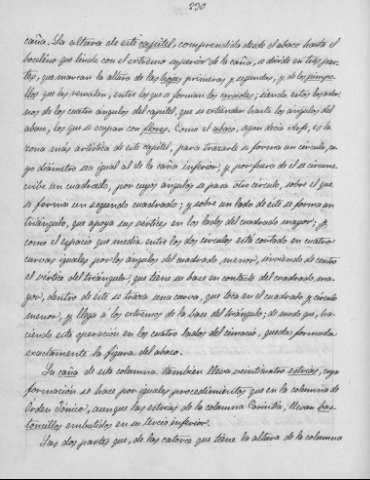 230
caña. La altura de este capitel, comprendida desde el abaco hasta el
bocelino que linda con el extremo superior de la caña, se divide en tres par-
tes, que marcan la altura de las hojas primeras y segundas, y de los pimpo-
llos que las rematan, entre los que se forman los caulículos; siendo estos los ador-
nos de los cuatro ángulos del capitel, que se extienden hasta los ángulos del
abaco, los que se ocupan con flores. Como el abaco, segun decía el es la
zona más artística de este capitel, para trazarle se forma un círculo, cu-
yo diámetro sea igual al de la caña inferior; y por fuera de él se circuns-
cribe un cuadrado, por cuyos ángulos se pasa otro círculo, sobre el que
se forma un segundo cuadrado; y sobre un lado de este se forma un
triángulo, que apoya sus vértices en los lados del cuadrado mayor; y
como el espacio que media entre los dos círculos está cortado en cuatro
curvas iguales por los ángulos del cuadrado menor, sirviendo de centro
el vértice del triángulo, que tiene su base en contacto del cuadrado ma-
yor, dentro de este se traza una curva, que toca en el cuadrado y círculo
menor, y llega á los extremos de la base del triángulo; de modo que, ha-
ciendo esta operación en los cuatro lados del cimacio, queda formada
exactamente la figura del abaco.
La caña de esta columna tambien lleva veinticuatro estrías, cuya
formación se hace por iguales procedimientos que en la columna de
Orden Jónico, aunque las estrías de la columna Corintia, llevan bas-
toncillos embutidos en su tercio inferior.
Las dos partes que, de las catorce que tiene la altura de la columna